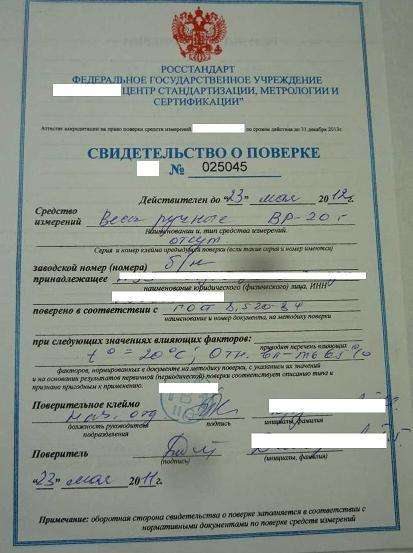 РОССТАНДАРТ
ФЕДЕРАЛЬНОЕ ГОСУДАРСТВЕННОЕ УЧРЕЖДЕНИЕ
ЦЕНТР СТАНДАРТИЗАЦИИ, МЕТРОЛОГИИ И
СЕРТИФИКАЦИИ"
Аттестат аккредитации на право поверки средств измерений по сроком действия до 31 декабря 2013г.
СВИДЕТЕЛЬСТВО О ПОВЕРКЕ
№ 025045
Действителен до "23" мая 2012г.
Средство
измерений Весы ручные ВР-20 г
Наименование и, тип средства измерений
отсут
Серия и номер клейма предыдущей поверки (если такие серия и номер имеются)
заводской номер (номера) б/н
принадлежащее
наименование юридического (физического) лица, ИНН
поверено в соответствии с гост 8.520-84
наименование и номер документа, на методику поверки
при следующих значениях влияющих факторов:
приводят перечень влияющих
t° = 20°С; Отн. вл-ть
факторов, нормированных в документе на методику поверки, с указанием их значений
и на основании результатов первичной (периодической) поверки соответствует описанию типа и
признано пригодным к применению.
Поверительное клеймо
нач. отд
должность руководителя
подразделения
(подпись)
инициалы, фамилия)
Поверитель
(подпись)
(инициалы, фамилия)
"23" мая 2011г.
Примечание: оборотная сторона свидетельства о поверке заполняется в соответствии с
нормативными документами по поверке средств измерений